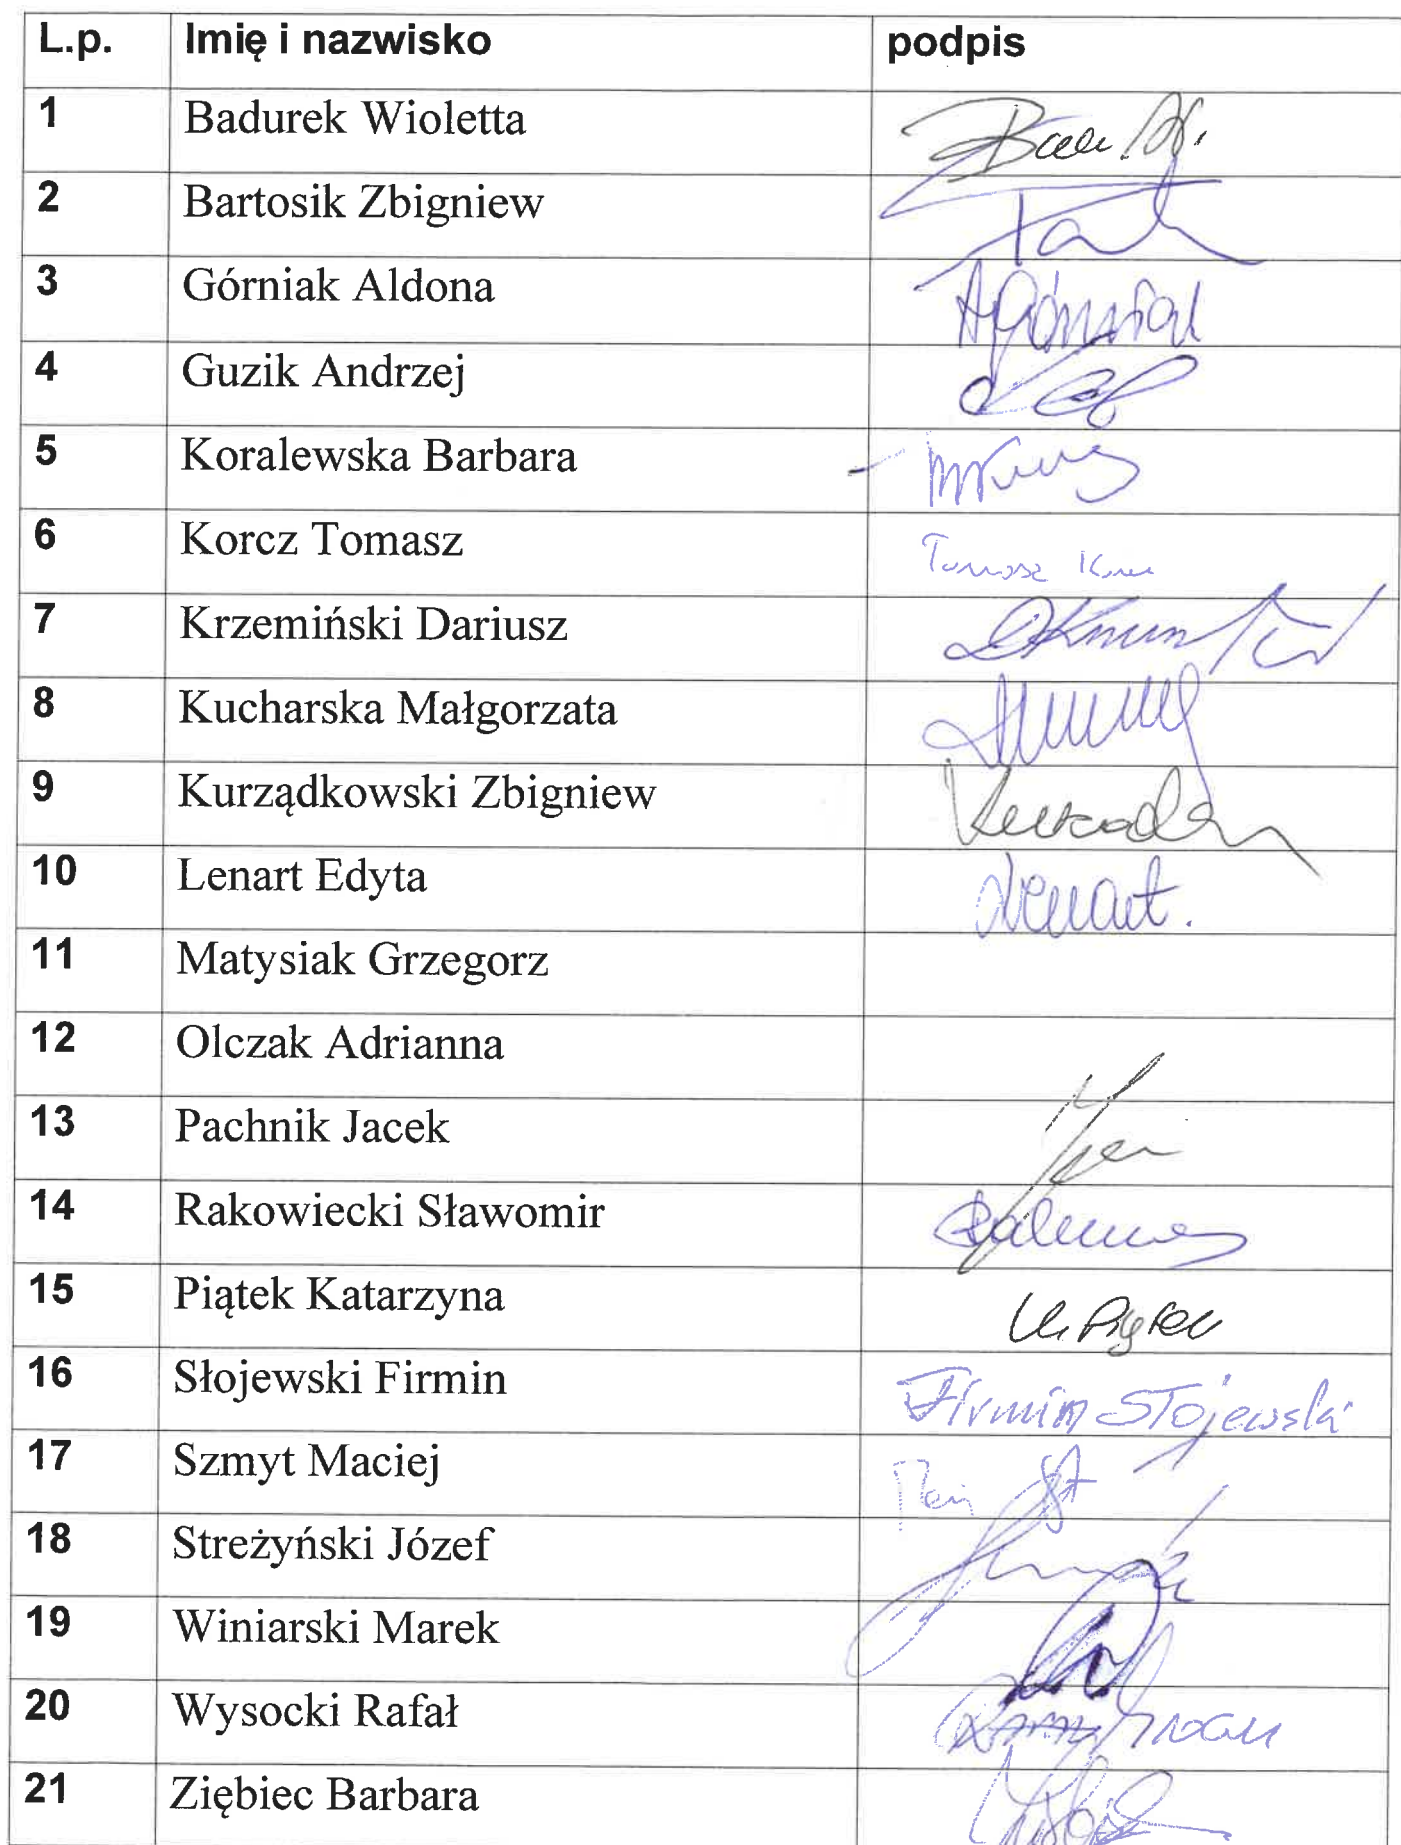 L.p. Imię i nazwisko podpis
1 Badurek Wioletta
2 Bartosik Zbigniew
3 Górniak Aldona AGórniak
4 Guzik Andrzej
5 Koralewska Barbara
6 Korcz Tomasz Tomasz
7 Krzemiński Dariusz
8 Kucharska Małgorzata
9 Kurządkowski Zbigniew
10 Lenart Edyta Lenart.
11 Matysiak Grzegorz
12 Olczak Adrianna
13 Pachnik Jacek
14 Rakowiecki Sławomir
15 Piątek Katarzyna K. Piątek
16 Słojewski Firmin Firmin Słojewski
17 Szmyt Maciej
18 Streżyński Józef
19 Winiarski Marek
20 Wysocki Rafał
21 Ziębiec Barbara